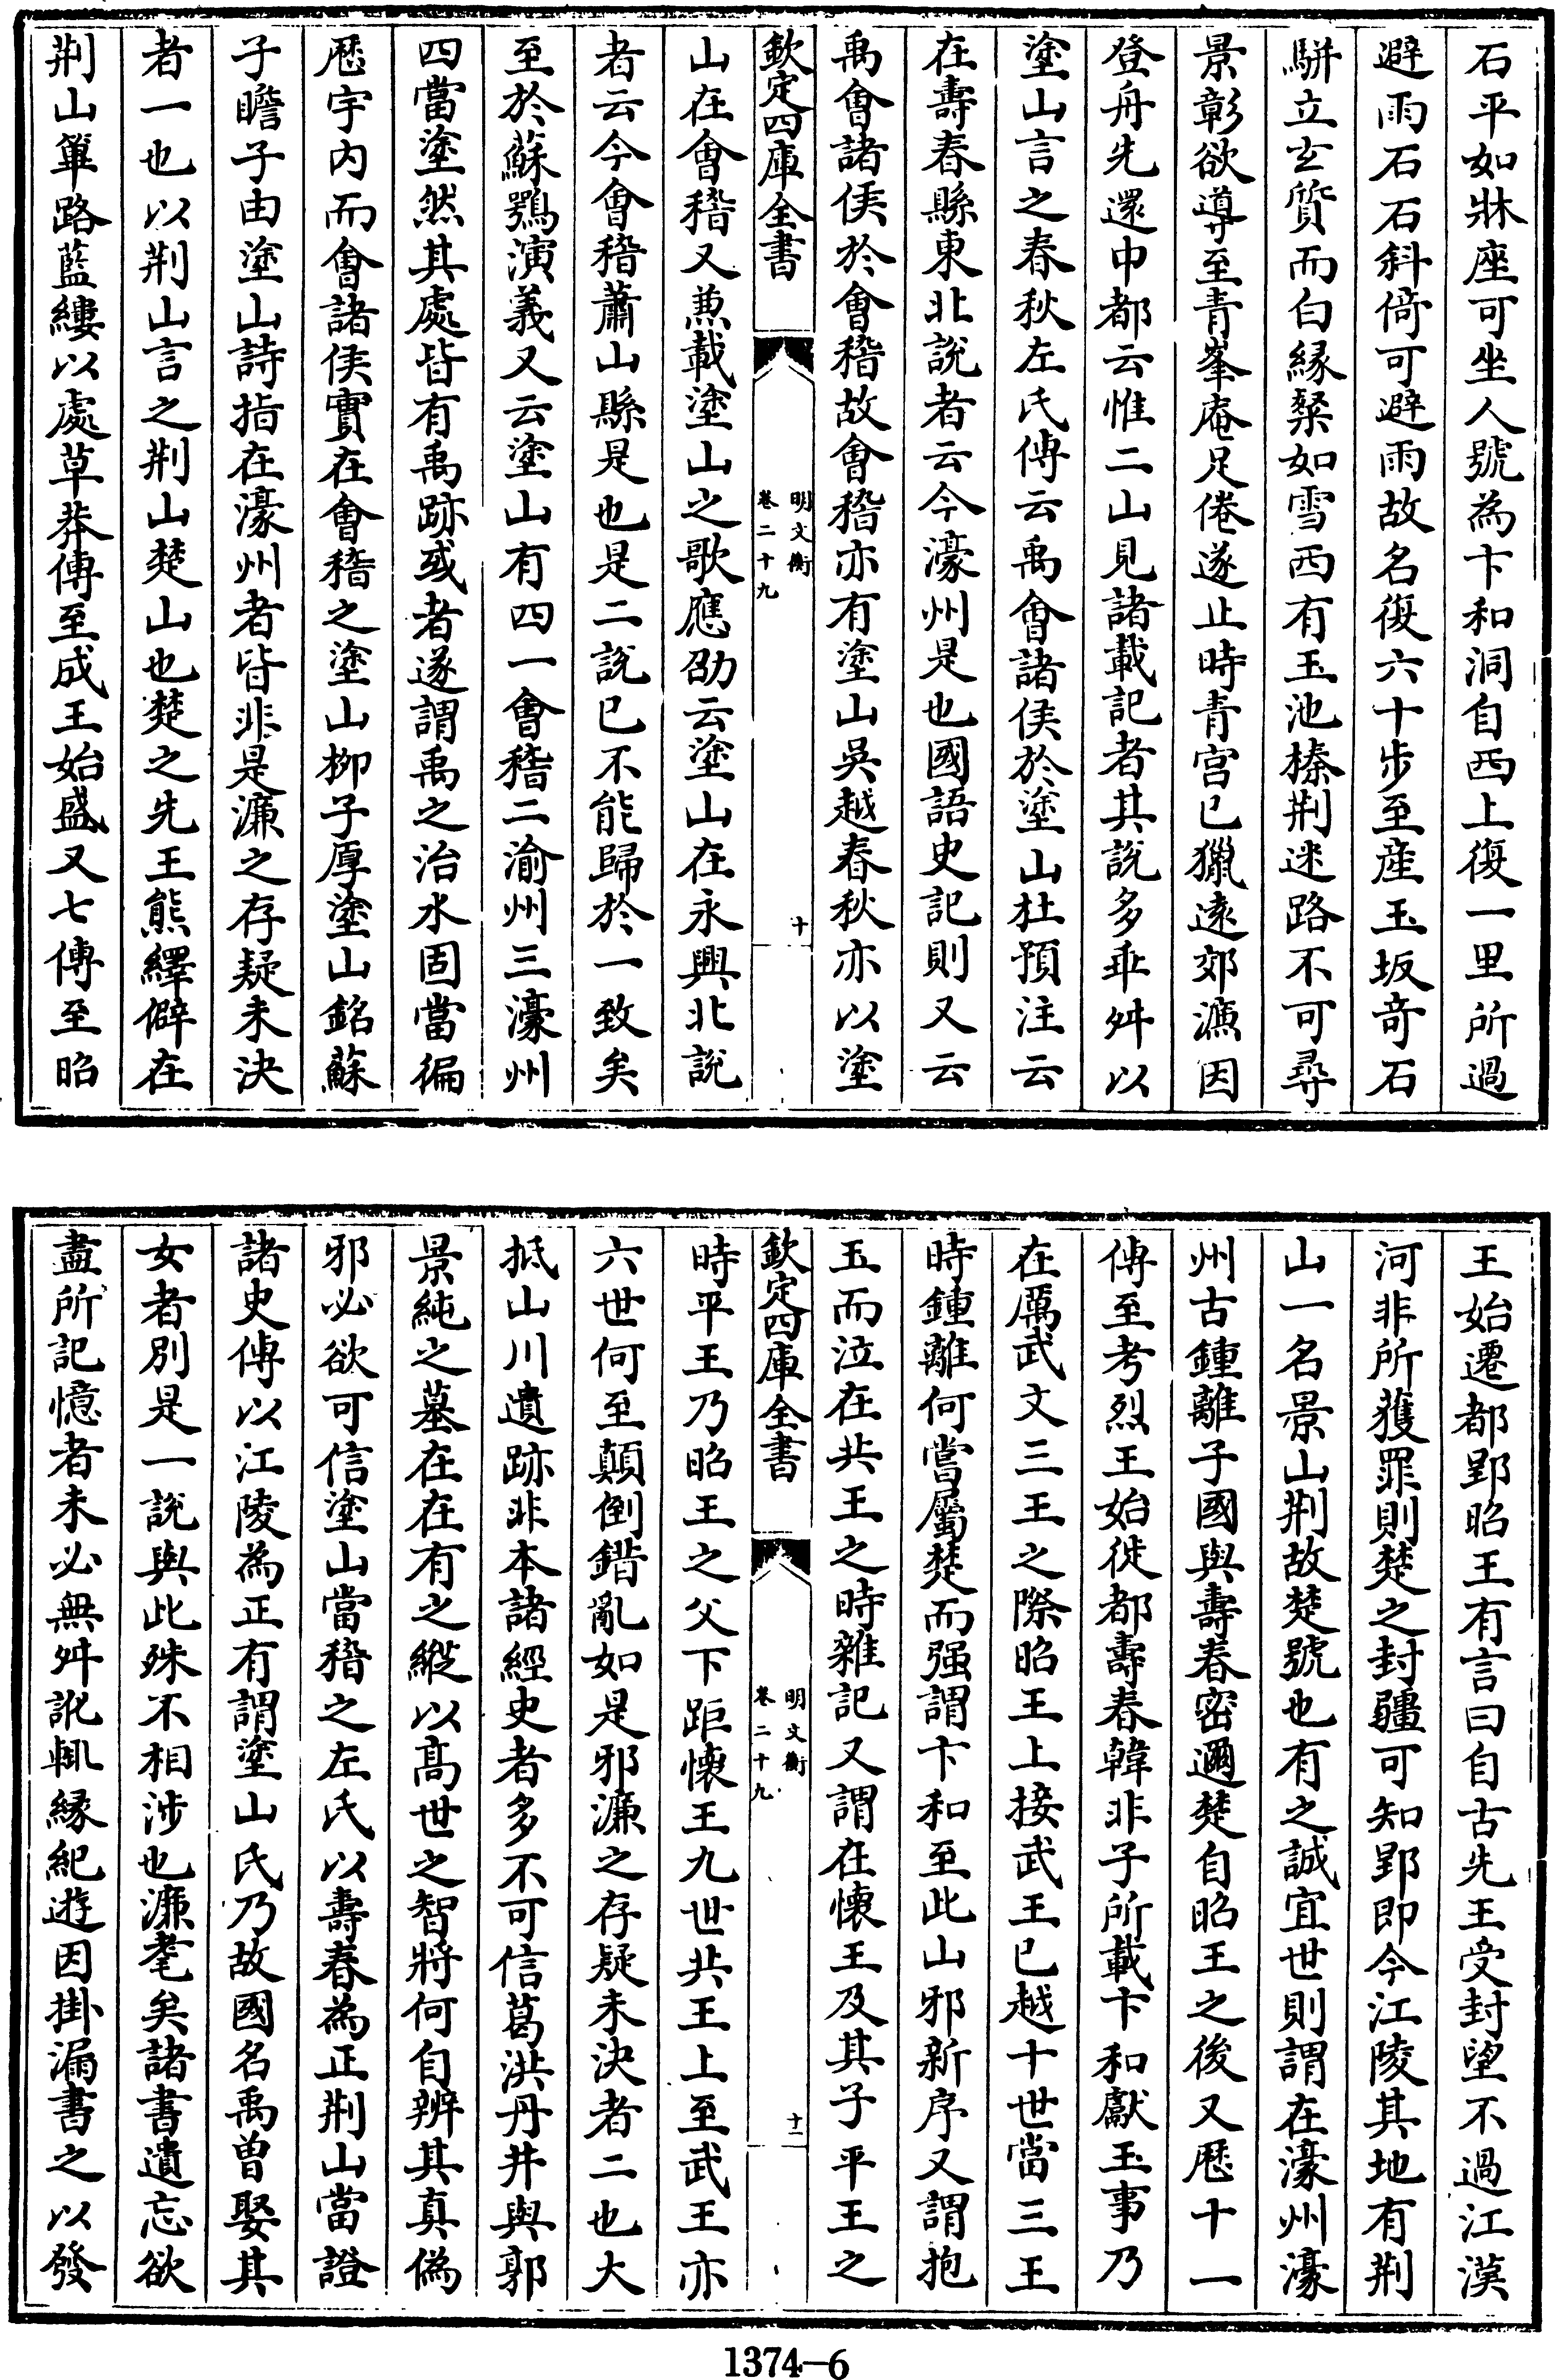 石平如牀座可坐人號為卞和洞自西上復一里所過
避雨石石斜倚可避雨故名復六十步至産玉坂竒石
駢立玄質而白縁粲如雪西有玉池榛荆迷路不可尋
景彰欲導至青峯庵足倦遂止時青宫已獵逺郊濂因
登舟先還中都云惟二山見諸載記者其說多乖舛以
塗山言之春秋左氏傳云禹㑹諸侯於塗山杜預注云
在壽春縣東北說者云今濠州是也國語史記則又云
禹㑹諸侯於㑹稽故㑹稽亦有塗山吳越春秋亦以塗
欽定四庫全書
明文衡
卷二十九
十
山在㑹稽又兼載塗山之歌應劭云塗山在永興北說
者云今㑹稽蕭山縣是也是二說已不能歸於一致矣
至於蘇鶚演義又云塗山有四一㑹稽二渝州三濠州
四當塗然其處皆有禹跡或者遂謂禹之治水固當徧
厯宇内而㑹諸侯實在㑹稽之塗山栁子厚塗山銘蘇
子瞻子由塗山詩指在濠州者皆非是濂之存疑未決
者一也以荆山言之荆山楚山也楚之先王熊繹僻在
荆山篳路藍縷以處草莽傳至成王始盛又七傳至昭
王始遷都郢昭王有言曰自古先王受封望不過江漢
河非所獲罪則楚之封疆可知郢即今江陵其地有荆
山一名景山荆故楚號也有之誠宜世則謂在濠州濠
州古鍾離子國與壽春密邇楚自昭王之後又厯十一
傳至考烈王始徙都壽春韓非子所載卞和獻玉事乃
在厲武文三王之際昭王上接武王已越十世當三王
時鍾離何嘗屬楚而强謂卞和至此山邪新序又謂抱
玉而泣在共王之時雜記又謂在懷王及其子平王之
欽定四庫全書
明文衡
卷二十九
十一
時平王乃昭王之父下距懷王九世共王上至武王亦
六世何至顛倒錯亂如是邪濂之存疑未決者二也大
抵山川遺跡非本諸經史者多不可信葛洪丹井與郭
景純之墓在在有之縱以髙世之智將何自辨其真僞
邪必欲可信塗山當稽之左氏以壽春為正荆山當證
諸史傳以江陵為正有謂塗山氏乃故國名禹曽娶其
女者别是一說與此殊不相涉也濂耄矣諸書遺忘欲
盡所記憶者未必無舛訛輒縁紀逰因掛漏書之以發
1374—6